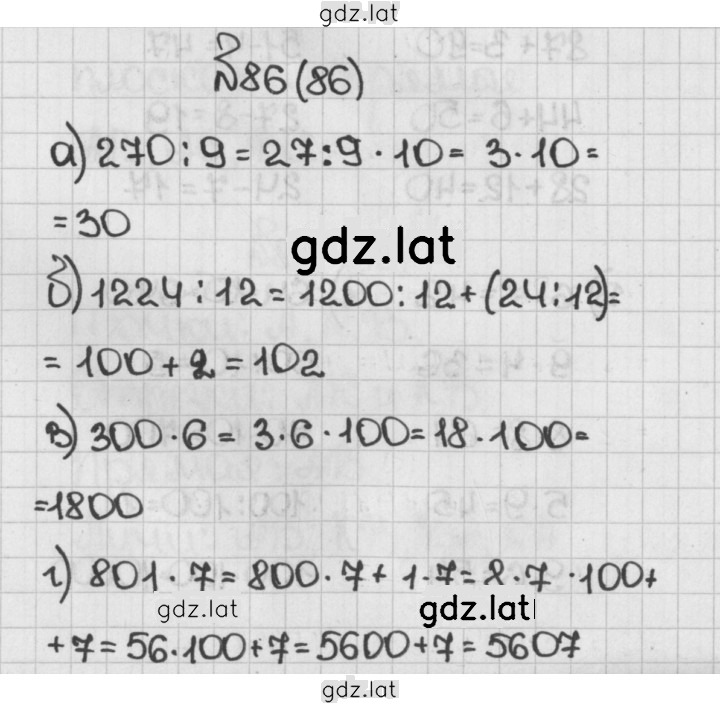 gdz.lat
№86(86)
а) 270:9=27:9·10= 3·10=
=30
gdz.lat
б) 1224:12=1200:12+(24:12)=
= 100+2=102
в) 300·6= 3·6·100=18·100=
=1800
г) 801·7=800·7+ 1·7=8·7·100+
gdz.lat gdz.lat
+7=56·100+7=5600+7=5607
gdz.lat